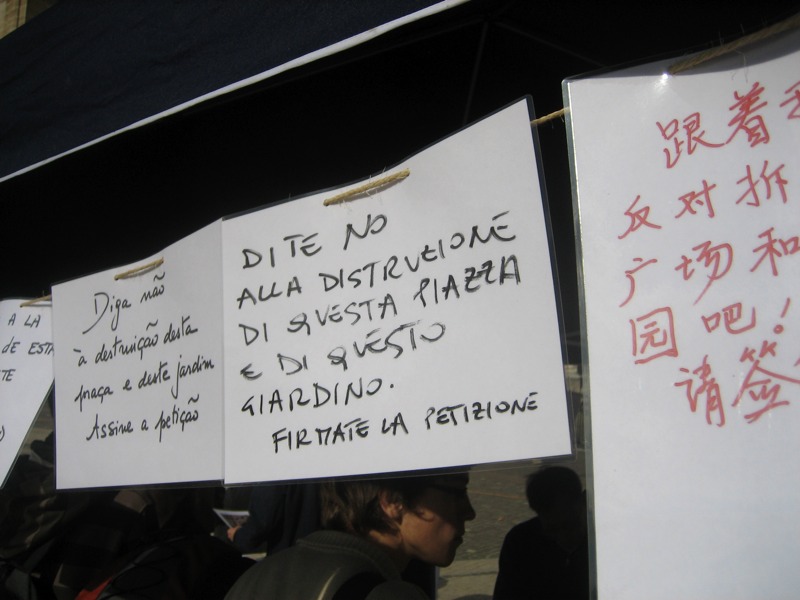 A LA
DE ESTA
TE
Diga não
à destruição desta
praça e deste jardim
Assine a petição
DITE NO
ALLA DISTRUZIONE
DI QUESTA PIAZZA
E DI QUESTO
GIARDINO.
FIRMATE LA PETIZIONE
跟着我
反对拆
广场和
园吧!
请签